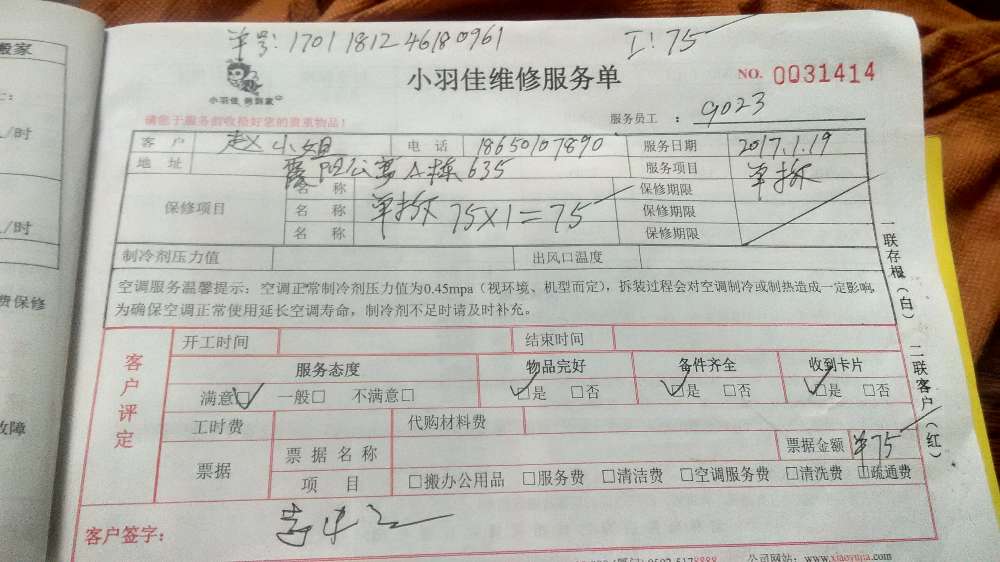 搬家
单号:1701181246180961 I:75
小羽佳 到家
小羽佳维修服务单
NO. 0031414
请您于服务前收捡好您的贵重物品!
服务员工 : 9023
客 户 赵小姐 电 话 18650107890 服务日期 2017.1.19
地 址 阳公寓A栋635 服务项目 单拆
保修项目 名 称 保修期限
名 称 单拆 75X1=75 保修期限
名 称 保修期限
制冷剂压力值 出风口温度
空调服务温馨提示:空调正常制冷剂压力值为0.45mpa(视环境、机型而定),拆装过程会对空调制冷或制热造成一定影响,
为确保空调正常使用延长空调寿命,制冷剂不足时请及时补充。
一联存根(白) 二联客户(红)
客户评定
开工时间 结束时间
服务态度 物品完好 备件齐全 收到卡片
满意☑ 一般□ 不满意□ ☑是 □否 ☑是 □否 ☑是 □否
工时费 代购材料费
票据 票据名称 票据金额 ¥75
项 目 □搬办公用品 □服务费 □清洁费 □空调服务费 □清洗费 □疏通费
客户签字:
公司网站:www.xiaoyujia.com
/时
/时
费保修
故障